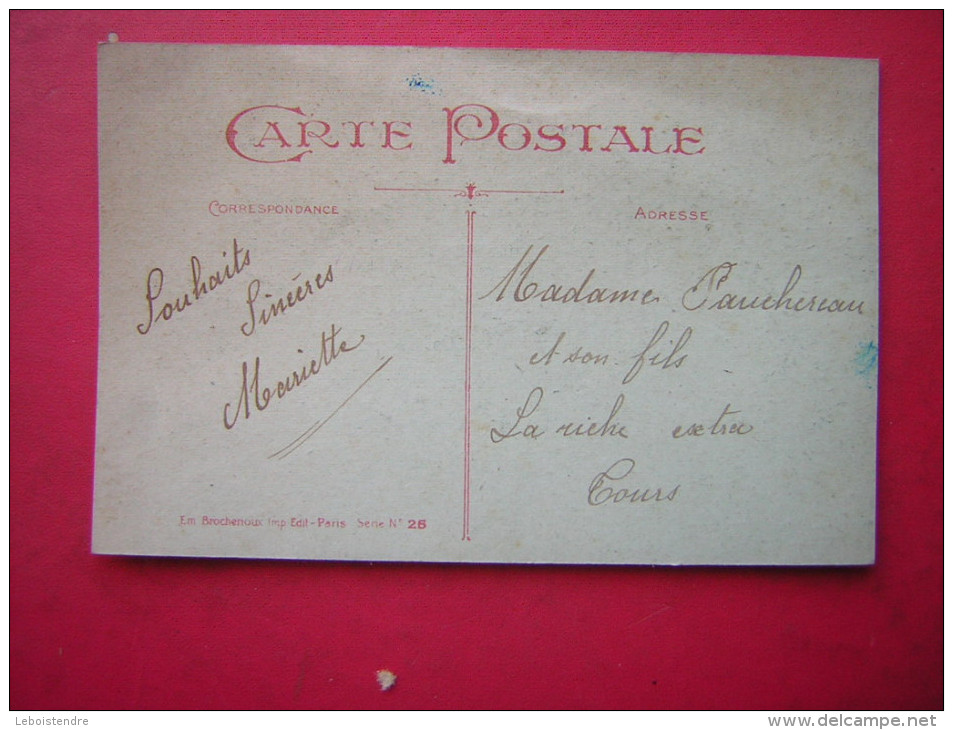 CARTE POSTALE
CORRESPONDANCE
ADRESSE
Souhaits
Sincères
Mariette
Madame Pauchereau
et son fils
La riche extra
Tours
Em. Brochenoux Imp. Edit-Paris Serie N° 25
Leboistendre
www.delcampe.net